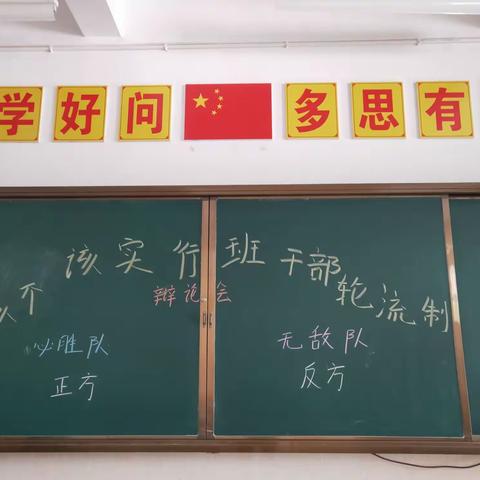 学好问多思有
不该实行班干部轮流制
辩论会
必胜队
正方
无敌队
反方